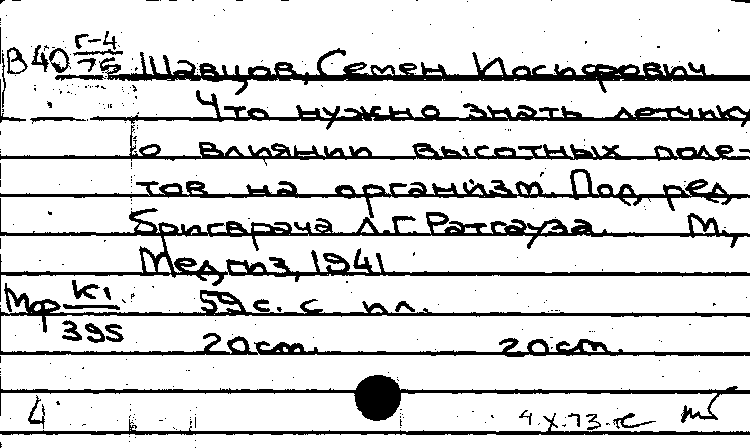 В 40 Г-4/76 Шавцов, Семен Иосифович
Что нужно знать летчику
о влиянии высотных поле-
тов на организм. Под ред.
бригврача Л.Г. Ратгауза. М.,
Медгиз, 1941
Мф К1/395 59 с. с ил.
20 см. 20 см.
4 4.X.73.